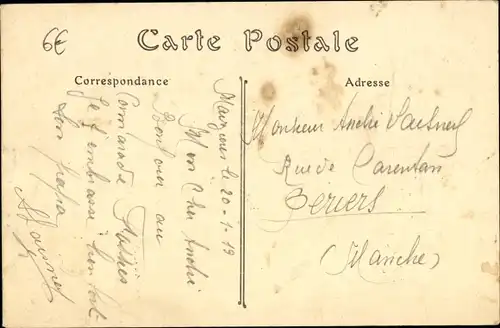 6€
Carte Postale
Correspondance
Adresse
le 20-1-19
Mon Cher André
Bonjour au
Camarade
Je t'embrasse bien fort
ton papa
Monsieur André
Rue de Carentan
Periers
(Manche)